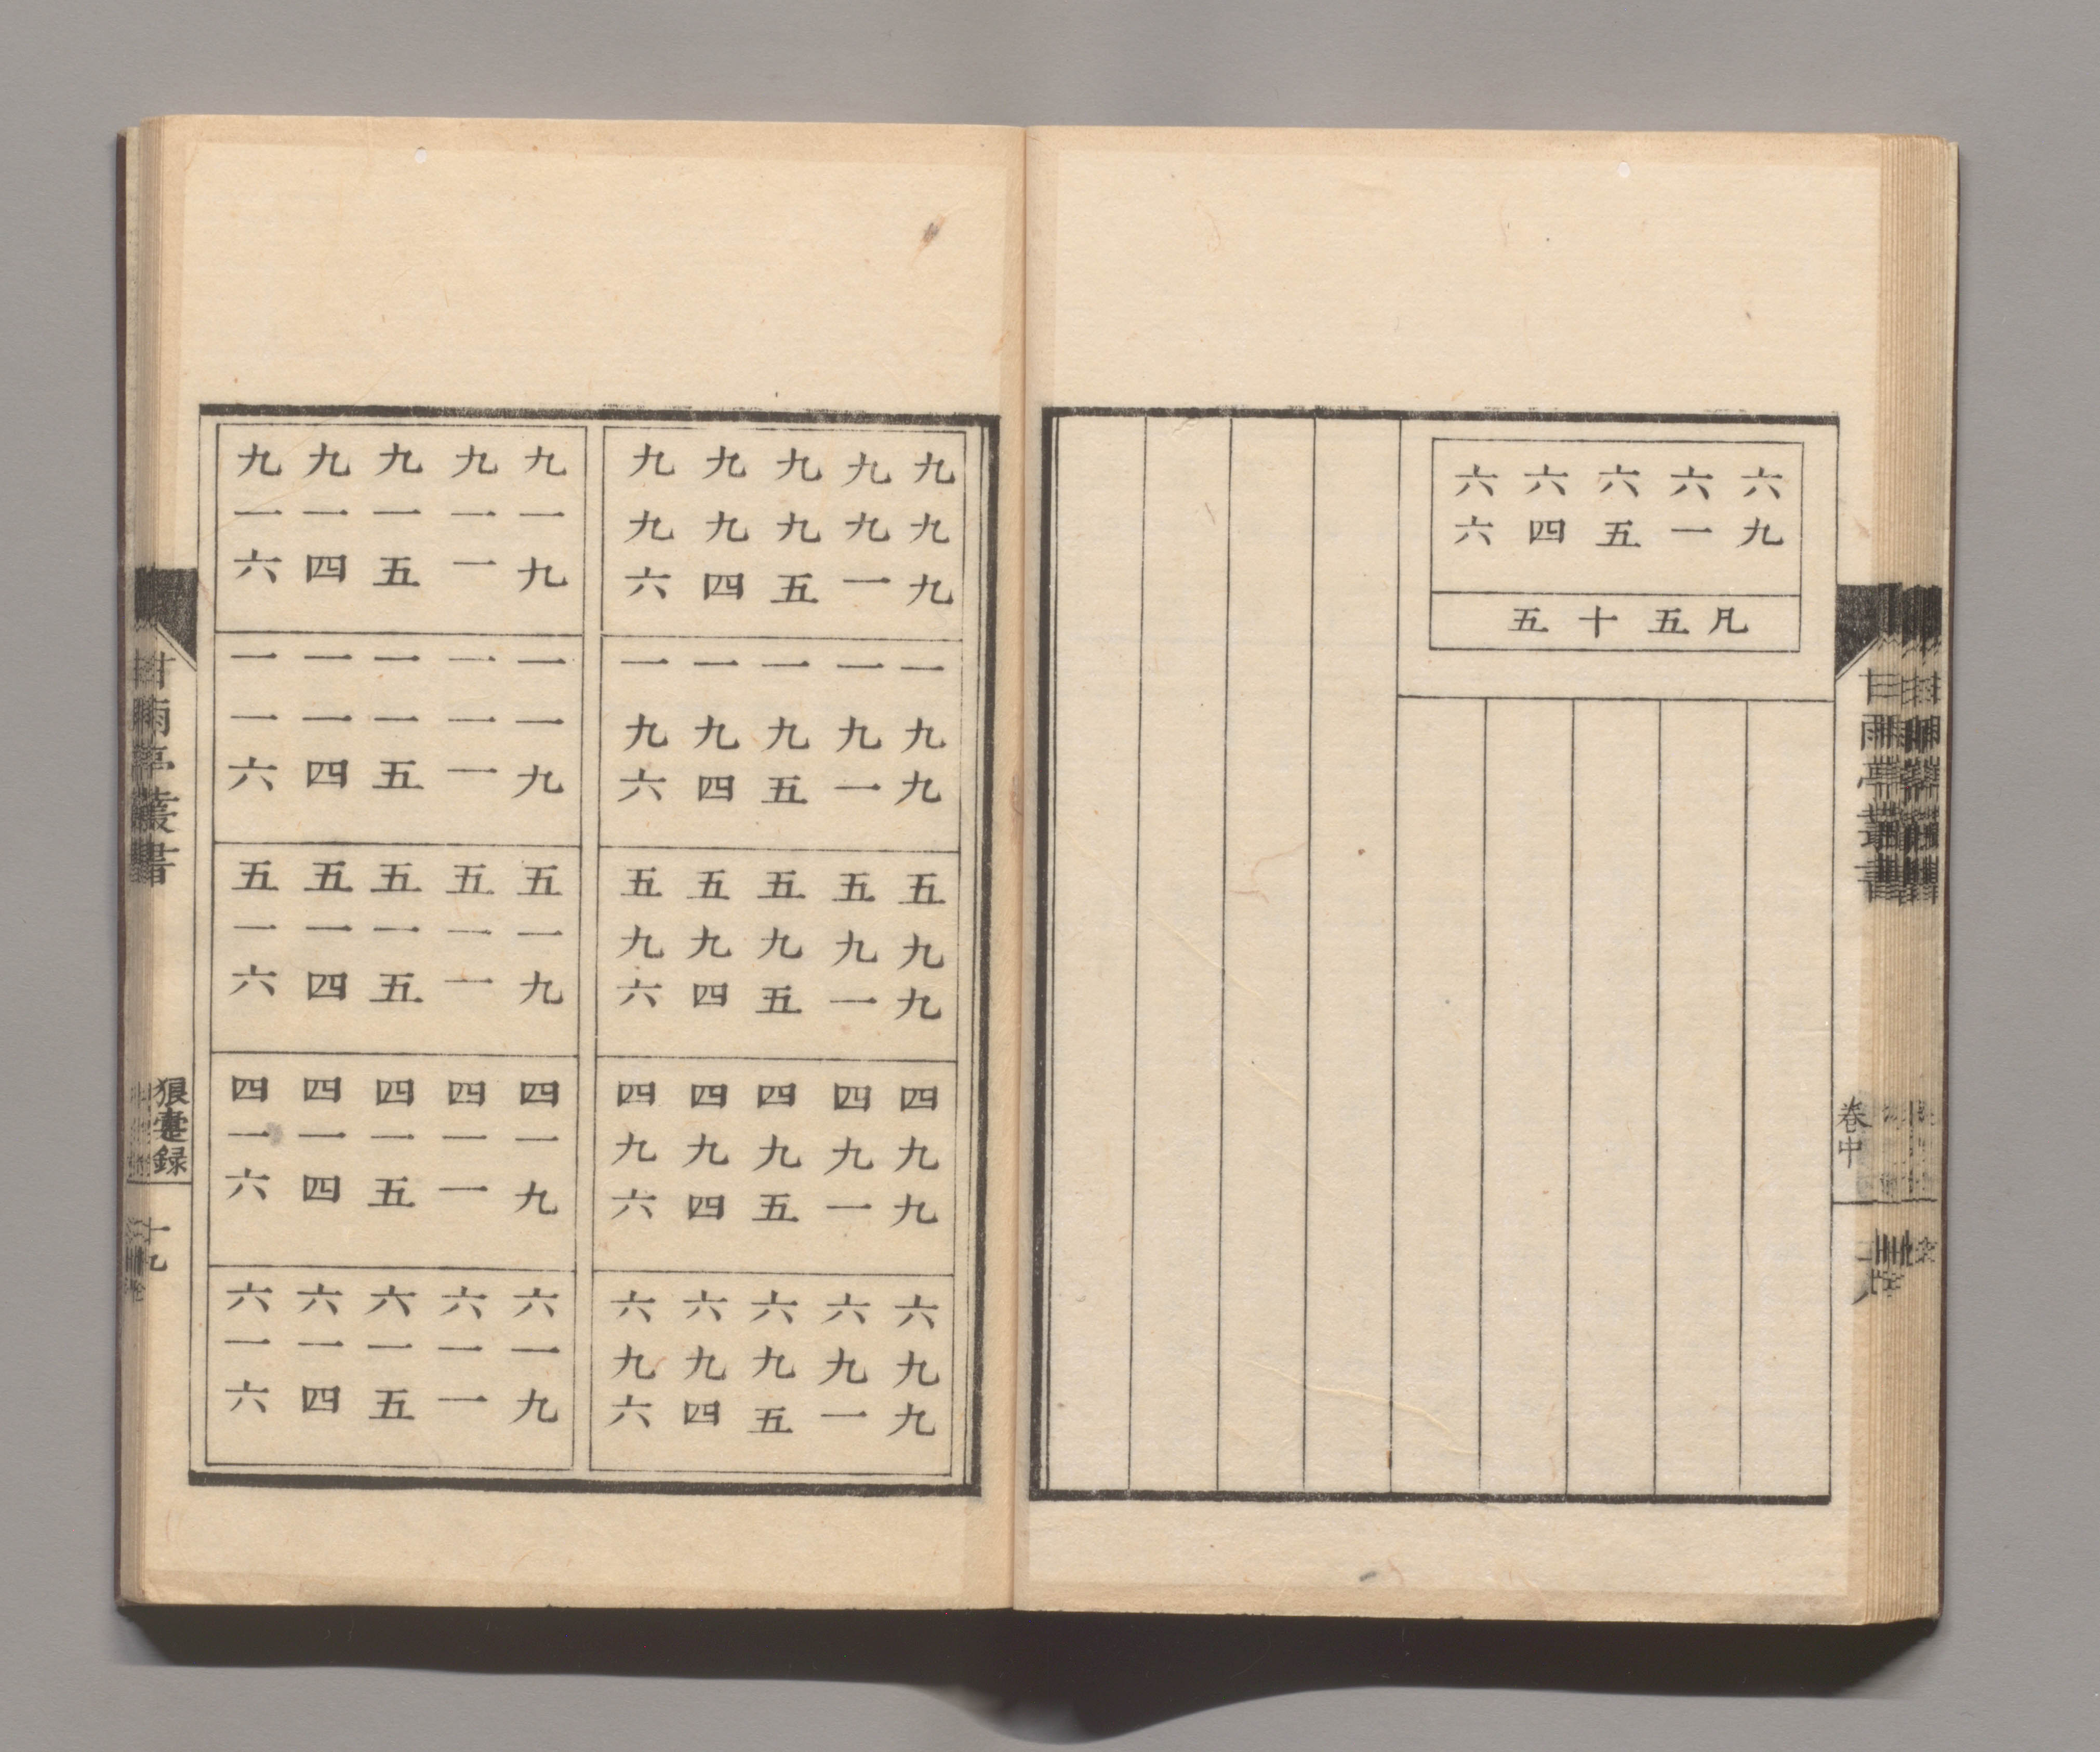 六九
六一
六五
六四
六六
凡五十五
甘雨亭叢書
卷中
九九九
九九一
九九五
九九四
九九六
一九九
一九一
一九五
一九四
一九六
五九九
五九一
五九五
五九四
五九六
四九九
四九一
四九五
四九四
四九六
六九九
六九一
六九五
六九四
六九六
九一九
九一一
九一五
九一四
九一六
一一九
一一一
一一五
一一四
一一六
五一九
五一一
五一五
五一四
五一六
四一九
四一一
四一五
四一四
四一六
六一九
六一一
六一五
六一四
六一六
甘雨亭叢書
狼疐録
十九